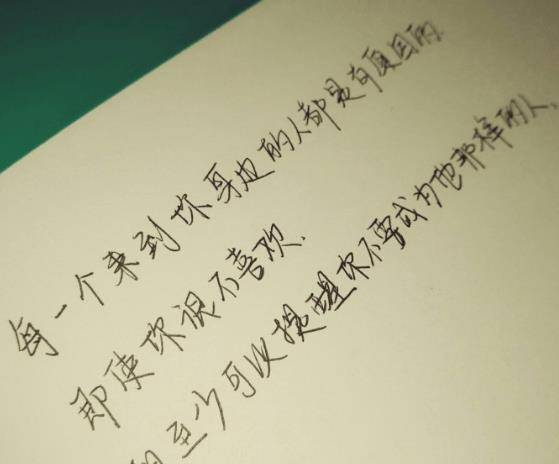 每一个来到你身边的人都是有原因的.
即使你很不喜欢.
至少可以提醒你不要成为他那样的人.